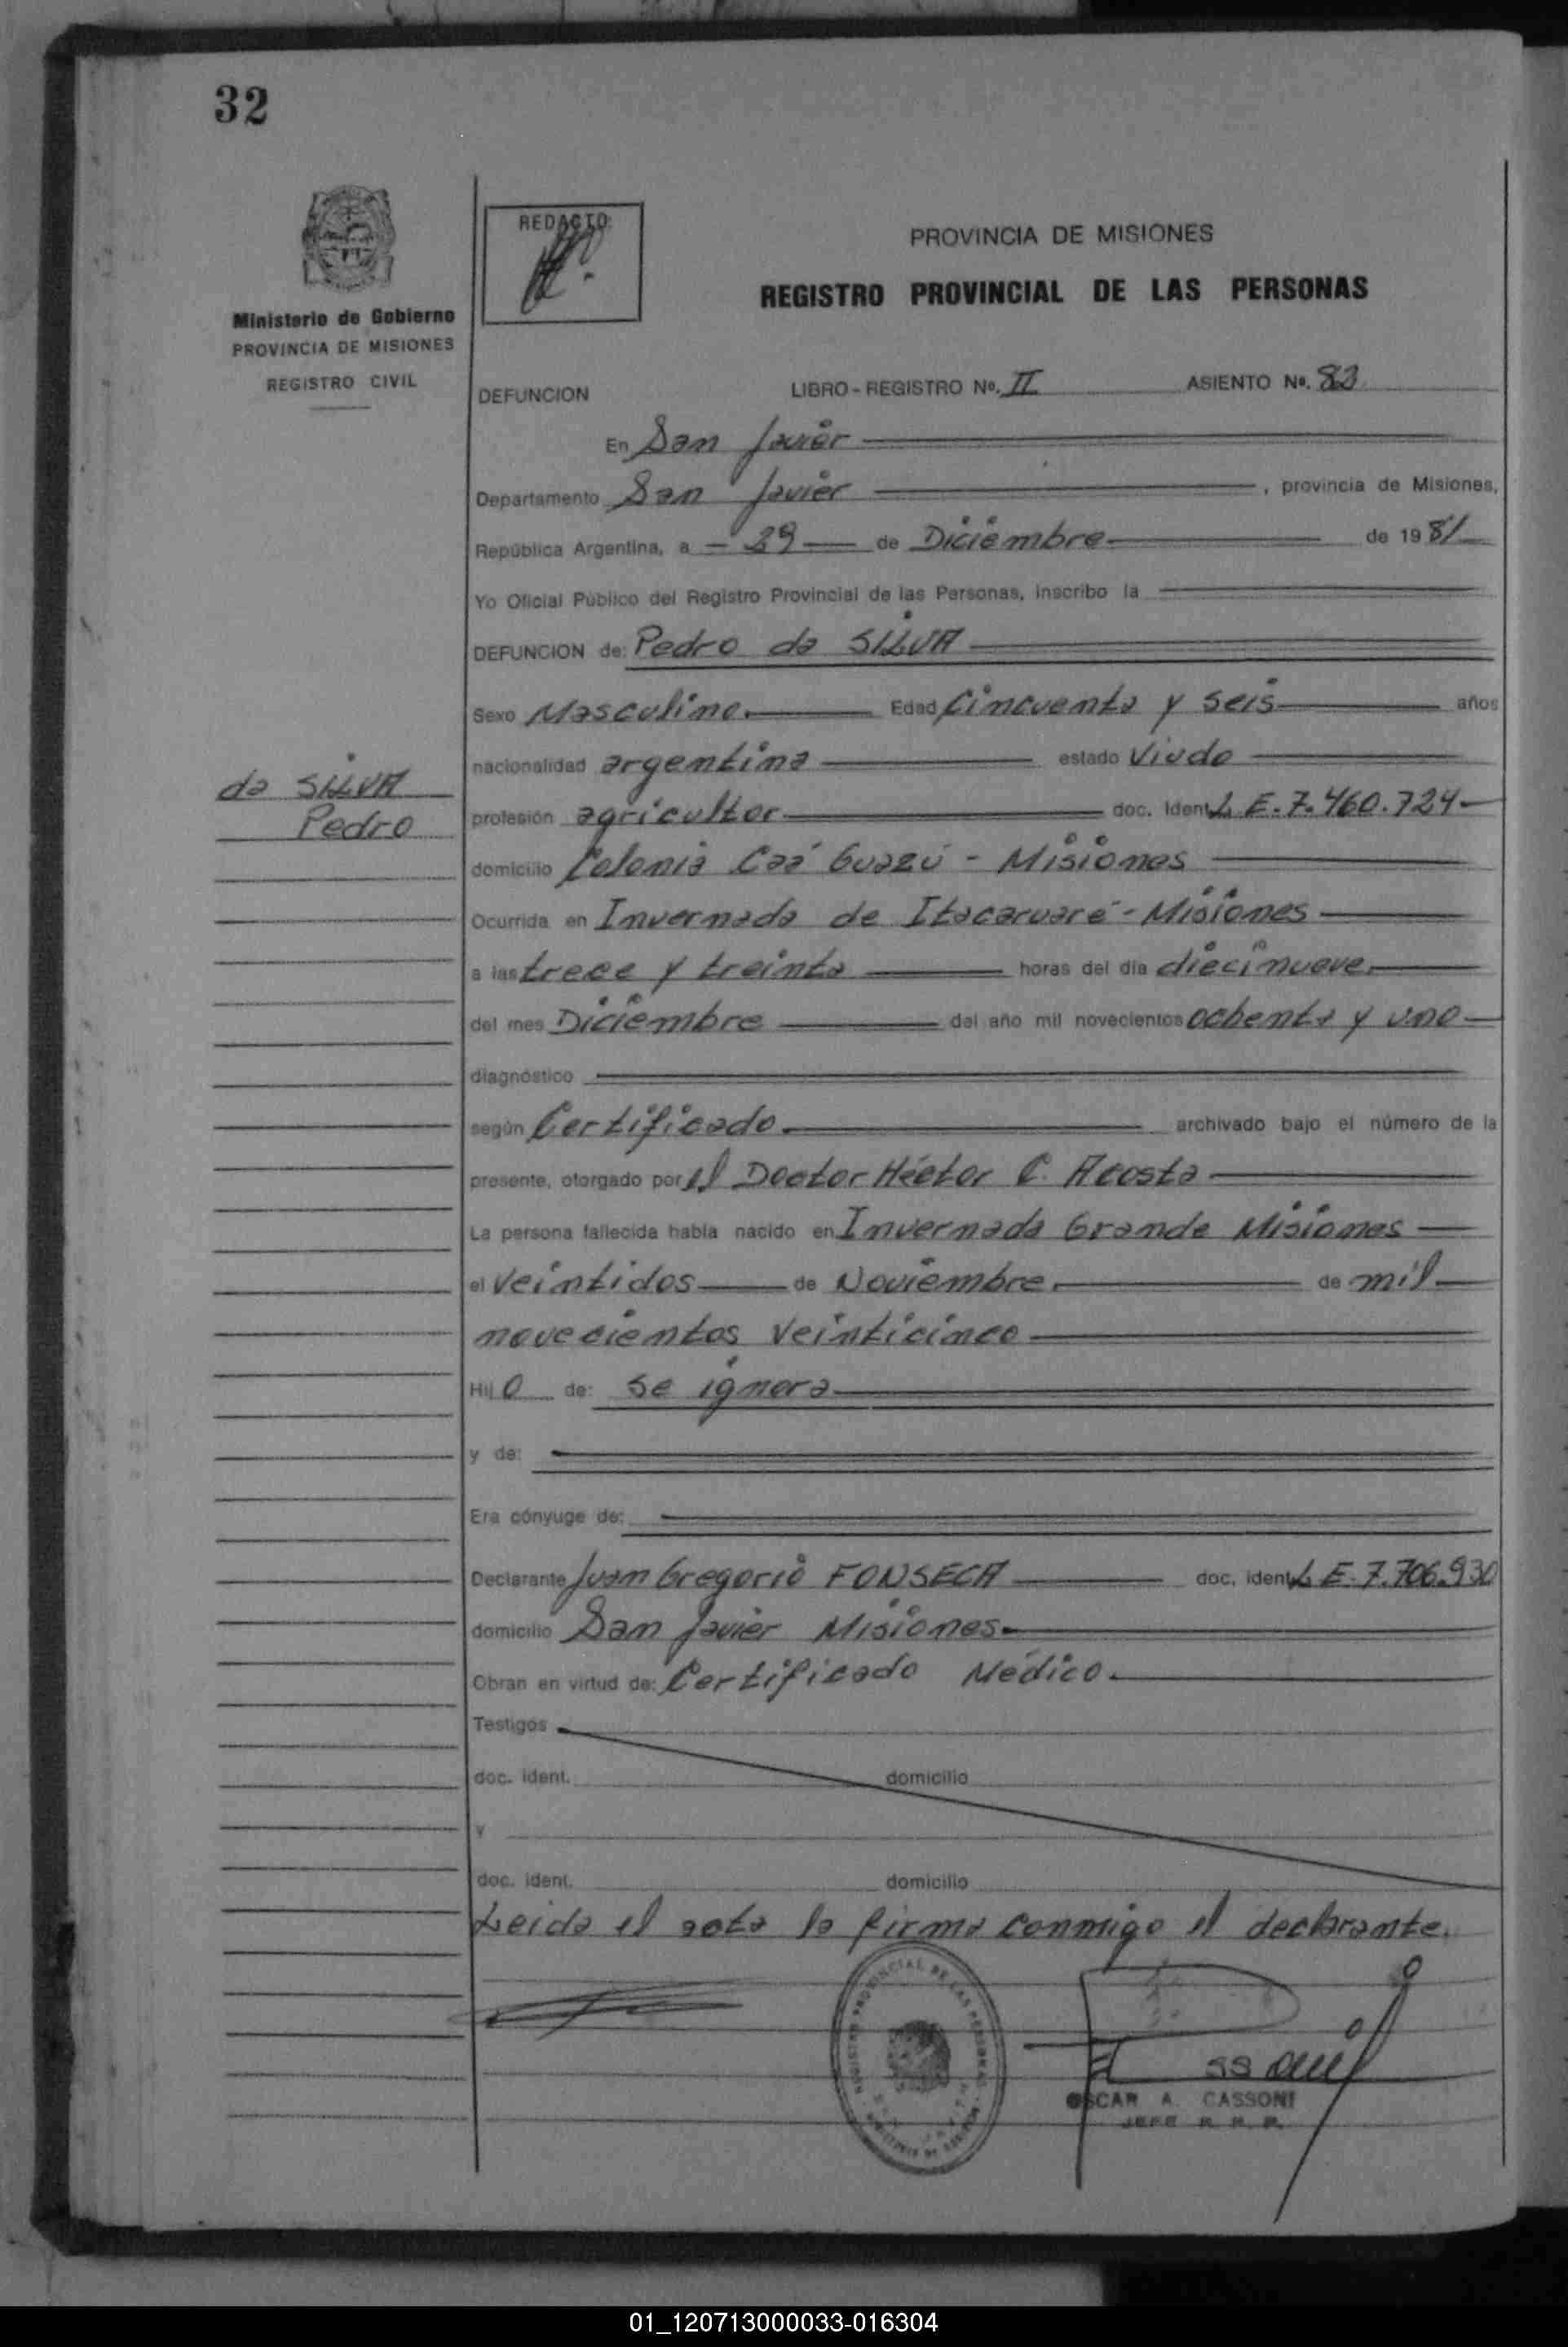 32
REDACTO:
PROVINCIA DE MISIONES
REGISTRO PROVINCIAL DE LAS PERSONAS
Ministerio de Gobierno
PROVINCIA DE MISIONES
REGISTRO CIVIL
DEFUNCION LIBRO - REGISTRO Nº. II ASIENTO Nº. 83
En San Javier
Departamento San Javier , provincia de Misiones,
República Argentina, a - 29 - de Diciembre de 1981
Yo Oficial Público del Registro Provincial de las Personas, inscribo la
DEFUNCION de: Pedro da SILVA
Sexo Masculino. Edad Cincuenta y seis años
nacionalidad argentina estado Viudo
da SILVA
Pedro
profesión agricultor doc. Ident. L.E. 7.460.724
domicilio Colonia Caá Guazú - Misiones
Ocurrida en Invernada de Itacaruaré - Misiones
a las trece y treinta horas del día diecinueve
del mes Diciembre del año mil novecientos ochenta y uno
diagnóstico
según Certificado. archivado bajo el número de la
presente, otorgado por el Doctor Héctor C. Acosta
La persona fallecida había nacido en Invernada Grande Misiones
el veintidos de Noviembre de mil
novecientos veinticinco
Hijo de: se ignora
y de:
Era cónyuge de:
Declarante Juan Gregorio FONSECA doc. ident. L.E. 7.706.930
domicilio San Javier Misiones.
Obran en virtud de: Certificado Médico.
Testigos
doc. ident. domicilio
y
doc. ident. domicilio
Leida el acta la firma conmigo el declarante.
REGISTRO PROVINCIAL DE LAS PERSONAS
OSCAR A. CASSONI
JEFE R. P. P.
01_120713000033-016304